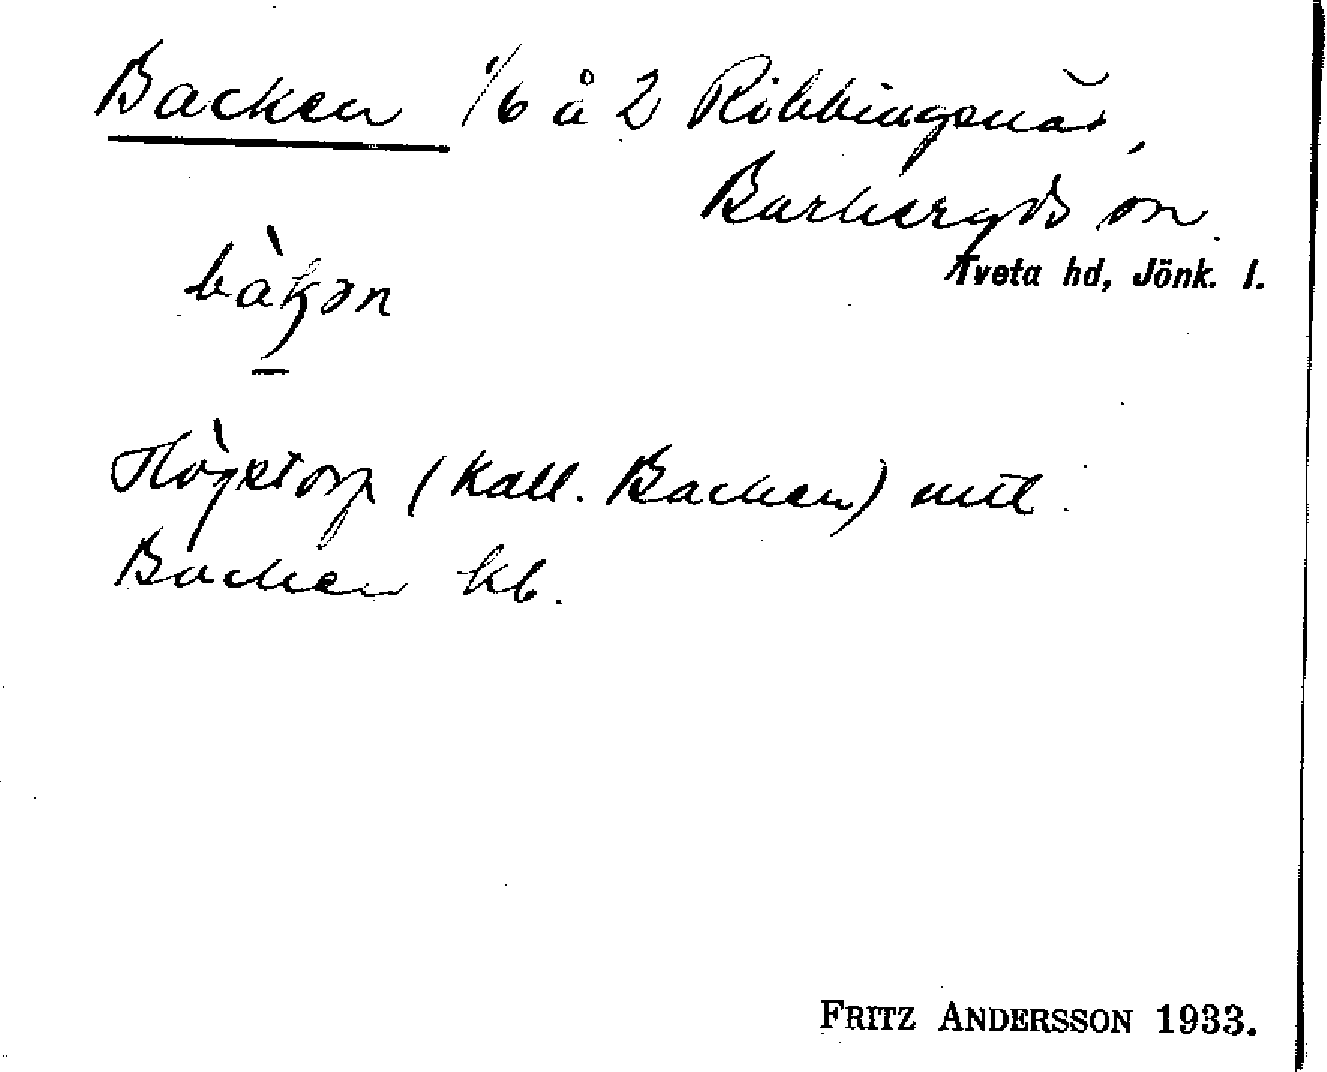 Backen 1/6 å 2 Ribbingsnäs,
Barkeryds sn.
Tveta hd, Jönk. l.
bàkən
Högstorp (kall. Backen) utl
Backen kb.
FRITZ ANDERSSON 1933.